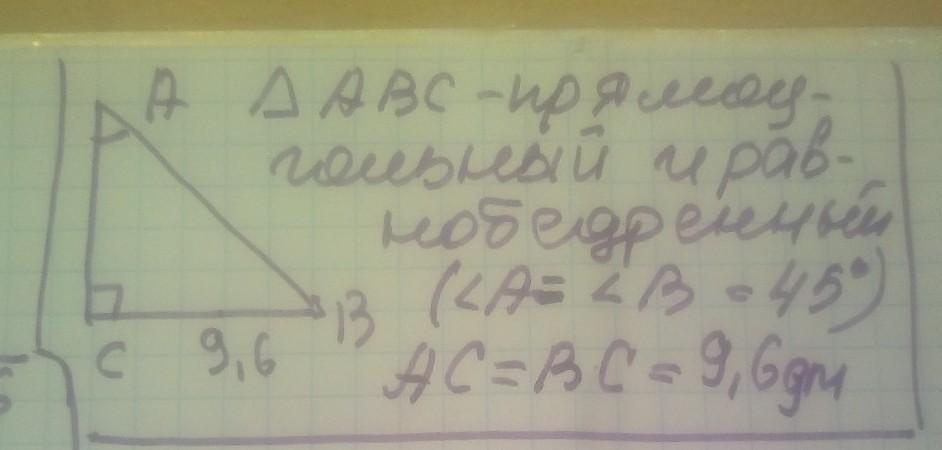 A △ABC - прямоу-
гольный и рав-
нобедренный
(∠A = ∠B = 45°)
B
C 9,6 AC = BC = 9,6 дм